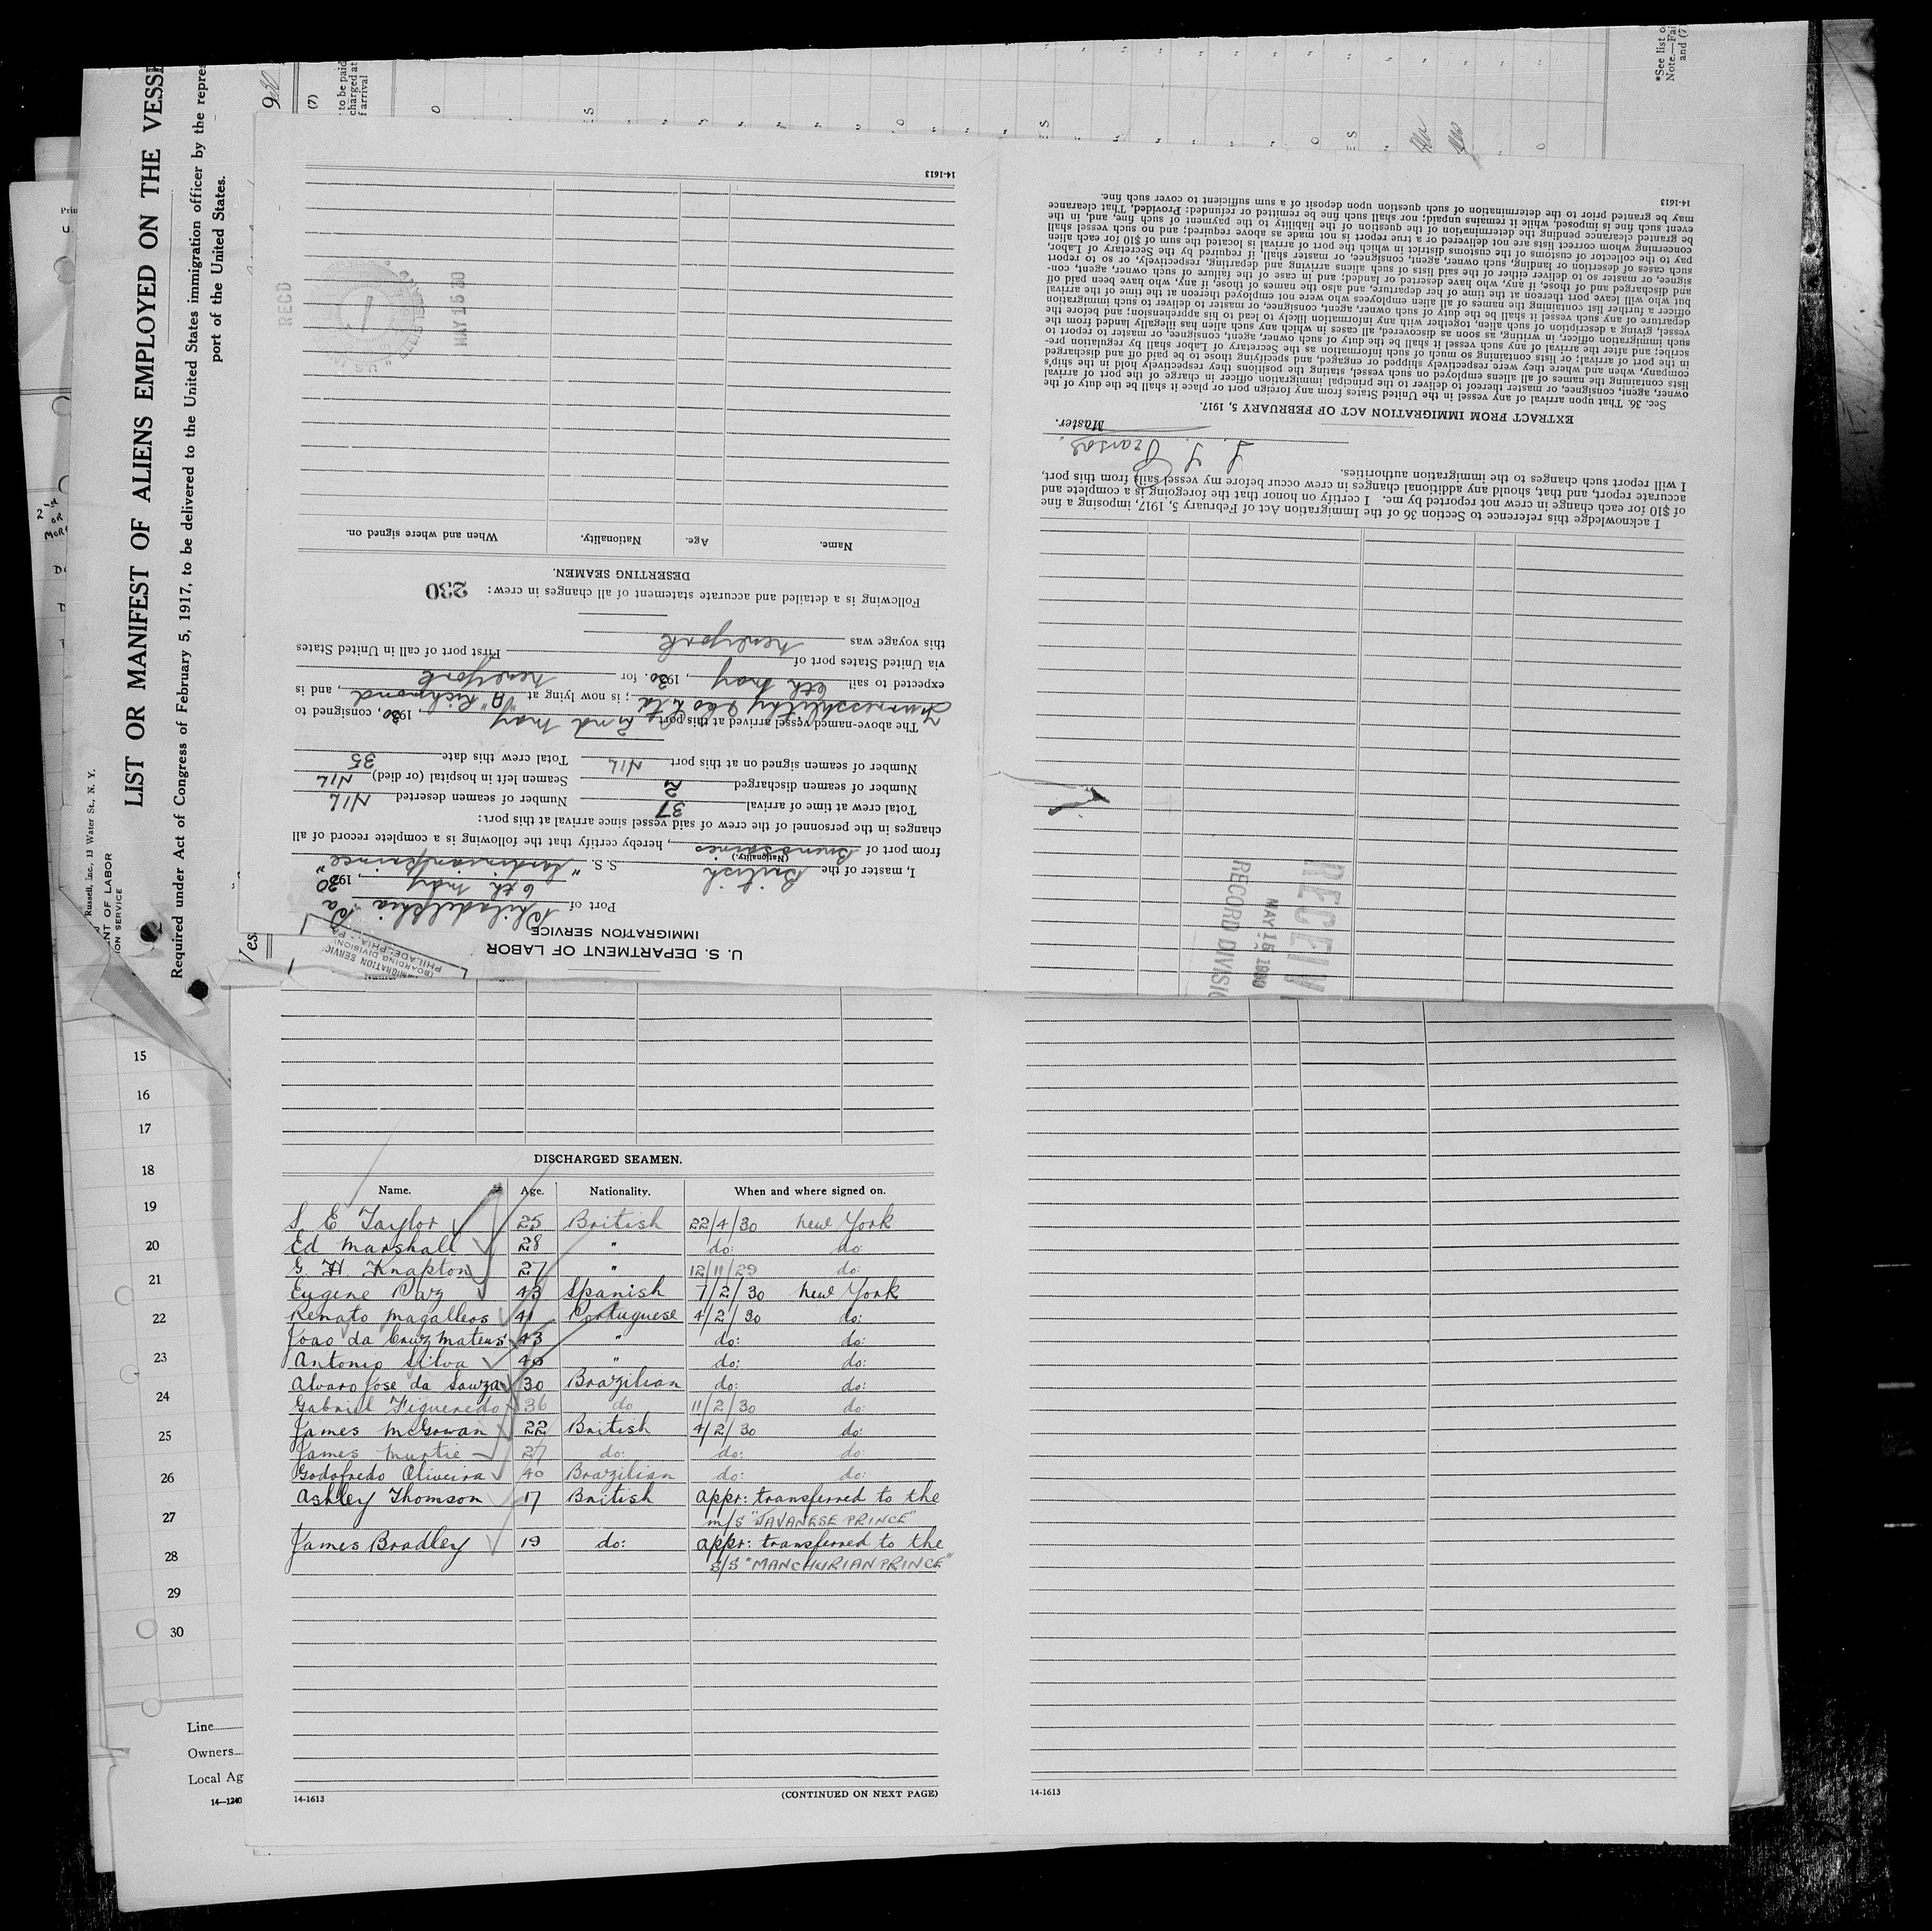 LIST OR MANIFEST OF ALIENS EMPLOYED ON THE VESSE
Required under Act of Congress of February 5, 1917, to be delivered to the United States immigration officer by the repres
port of the United States.
Russell, Inc., 13 Water St., N. Y.
NT OF LABOR
ION SERVICE
(7)
to be paid
charged at
f arrival
*See list o
Note.—Fai
and (7
U. S. DEPARTMENT OF LABOR
IMMIGRATION SERVICE
IMMIGRATION SERVIC
(BOARDING DIVISION)
PHILADELPHIA - PA
Port of Philadelphia Pa
6th May, 1930
I, master of the British S. S. "Sardinian Prince"
(Nationality.)
from port of Buenos Aires, hereby certify that the following is a complete record of all
changes in the personnel of the crew of said vessel since arrival at this port:
Total crew at time of arrival 37 Number of seamen deserted NIL
Number of seamen discharged 2 Seamen left in hospital (or died) NIL
Number of seamen signed on at this port NIL Total crew this date 35
The above-named vessel arrived at this port 2nd May, 1930, consigned to
Furness Withy & Co Ltd; is now lying at "A" Richmond, and is
expected to sail 6th May, 1930. for New York
via United States port of First port of call in United States
this voyage was New York
Following is a detailed and accurate statement of all changes in crew: 230
DESERTING SEAMEN.
Name. Age. Nationality. When and where signed on.
RECD
MAY 15 30
14-1613
I acknowledge this reference to Section 36 of the Immigration Act of February 5, 1917, imposing a fine
of $10 for each change in crew not reported by me. I certify on honor that the foregoing is a complete and
accurate report, and that, should any additional changes in crew occur before my vessel sails from this port,
I will report such changes to the immigration authorities.
Master.
EXTRACT FROM IMMIGRATION ACT OF FEBRUARY 5, 1917.
Sec. 36. That upon arrival of any vessel in the United States from any foreign port or place it shall be the duty of the
owner, agent, consignee, or master thereof to deliver to the principal immigration officer in charge of the port of arrival
lists containing the names of all aliens employed on such vessel, stating the positions they respectively hold in the ship's
company, when and where they were respectively shipped or engaged, and specifying those to be paid off and discharged
in the port of arrival; or lists containing so much of such information as the Secretary of Labor shall by regulation pre-
scribe; and after the arrival of any such vessel it shall be the duty of such owner, agent, consignee, or master to report to
such immigration officer, in writing, as soon as discovered, all cases in which any such alien has illegally landed from the
vessel, giving a description of such alien, together with any information likely to lead to his apprehension; and before the
departure of any such vessel it shall be the duty of such owner, agent, consignee, or master to deliver to such immigration
officer a further list containing the names of all alien employees who were not employed thereon at the time of the arrival
but who will leave port thereon at the time of her departure, and also the names of those, if any, who have been paid off
and discharged and of those, if any, who have deserted or landed; and in case of the failure of such owner, agent, con-
signee, or master so to deliver either of the said lists of such aliens arriving and departing, respectively, or so to report
such cases of desertion or landing, such owner, agent, consignee, or master shall, if required by the Secretary of Labor,
pay to the collector of customs of the customs district in which the port of arrival is located the sum of $10 for each alien
concerning whom correct lists are not delivered or a true report is not made as above required; and no such vessel shall
be granted clearance pending the determination of the question of the liability to the payment of such fine, and, in the
event such fine is imposed, while it remains unpaid; nor shall such fine be remitted or refunded: Provided, That clearance
may be granted prior to the determination of such question upon deposit of a sum sufficient to cover such fine.
14-1613
RECEIV
MAY 15 1930
RECORD DIVISIO
DISCHARGED SEAMEN.
Name. Age. Nationality. When and where signed on.
S. E Taylor 25 British 22/4/30 New York
Ed Marshall 28 " do: do:
G. H. Knapton 27 " 12/11/29 do:
Eugene Paz 43 Spanish 7/2/30 New York
Renato Magalleos 41 Portuguese 4/2/30 do:
Joao da Cruz Mateus 43 " do: do:
Antonio Silva 40 " do: do:
Alvaro Jose da Sauza 30 Brazilian do: do:
Gabriel Figueredo 36 do 11/2/30 do:
James McGowan 22 British 4/2/30 do:
James Murtie 27 do: do: do:
Godofredo Oliveira 40 Brazilian do: do:
Ashley Thomson 17 British appr: transferred to the
m/s "JAVANESE PRINCE"
James Bradley 19 do: appr: transferred to the
S/S "MANCHURIAN PRINCE"
14-1613 (CONTINUED ON NEXT PAGE)
14-1613
15
16
17
18
19
20
21
22
23
24
25
26
27
28
29
30
Line
Owners
Local Ag
14—1240